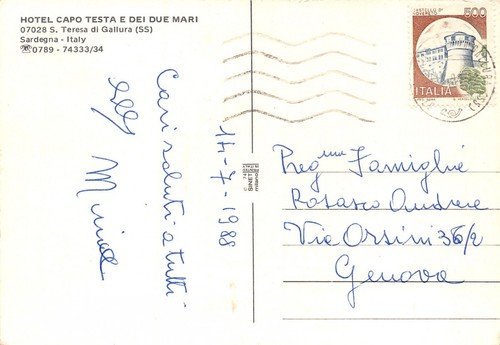 HOTEL CAPO TESTA E DEI DUE MARI
07028 S. Teresa di Gallura (SS)
Sardegna - Italy
☎0789 - 74333/34
500
CASTELLO DI
ROVERETO
ITALIA
14-7-1988
Cari saluti a tutti
SINET
milano
Preg.me Famiglie
Rosasco Andrea
Via Orsini 36/2
Genova